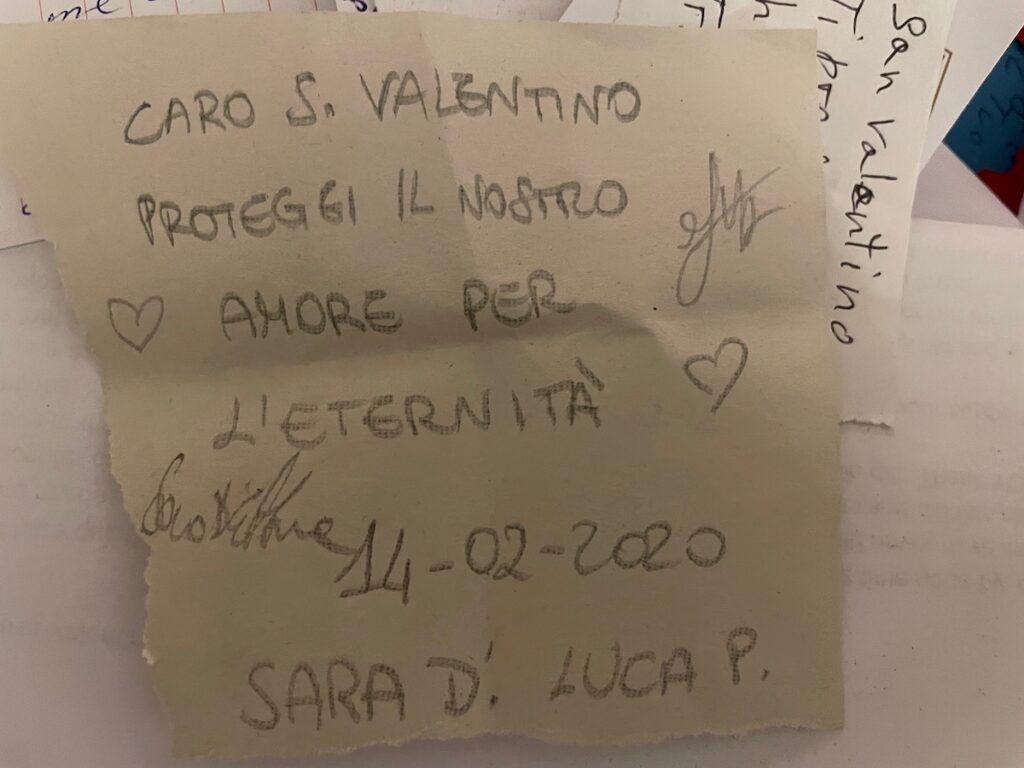 CARO S. VALENTINO
PROTEGGI IL NOSTRO
AMORE PER
L'ETERNITÀ
14-02-2020
SARA D. LUCA P.
San Valentino
Ti
me